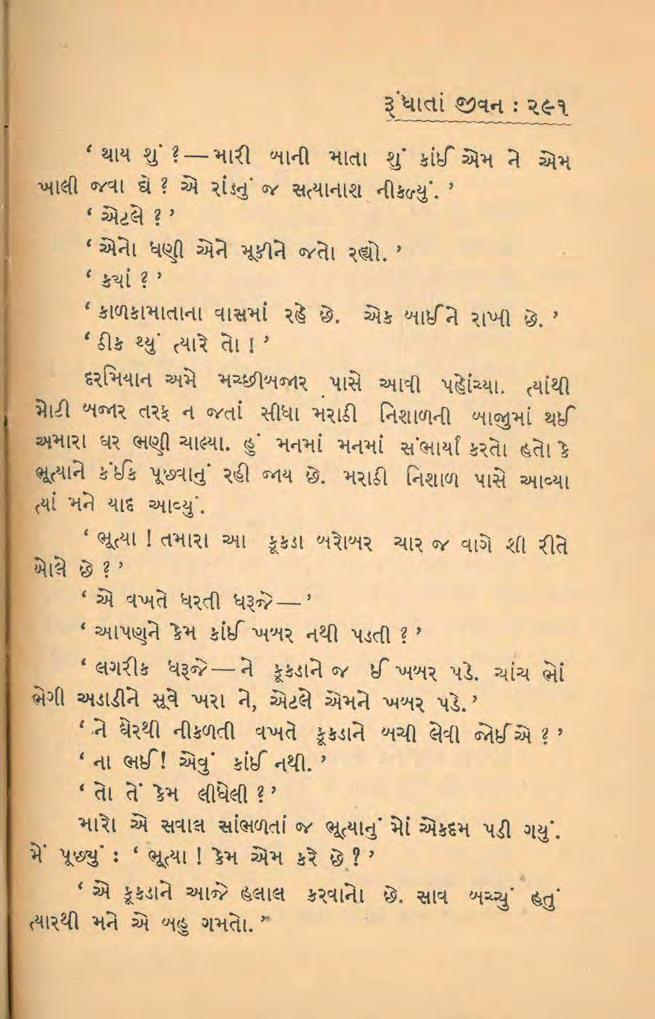 રૂંધાતાં જીવન : ૨૯૧
‘ થાય શું ? — મારી બાની માતા શું કાંઈ એમ ને એમ
ખાલી જવા ઘે ? એ રાંડનું જ સત્યાનાશ નીકળ્યું. ’
‘ એટલે ? ’
‘ એનો ધણી એને મૂકીને જતો રહ્યો. ’
‘ ક્યાં ? ’
‘ કાળકામાતાના વાસમાં રહે છે. એક બાઈને રાખી છે. ’
‘ ઠીક થ્યું ત્યારે તો ! ’
દરમિયાન અમે મચ્છીબજાર પાસે આવી પહોંચ્યા. ત્યાંથી
મોટી બજાર તરફ ન જતાં સીધા મરાઠી નિશાળની બાજુમાં થઈ
અમારા ઘર ભણી ચાલ્યા. હું મનમાં મનમાં સંભાર્યા કરતો હતો કે
ભૂત્યાને કંઈક પૂછવાનું રહી જાય છે. મરાઠી નિશાળ પાસે આવ્યા
ત્યાં મને યાદ આવ્યું.
‘ ભૂત્યા ! તમારા આ કૂકડા બરોબર ચાર જ વાગે શી રીતે
બોલે છે ? ’
‘ એ વખતે ધરતી ધરૂજે — ’
‘ આપણને કેમ કાંઈ ખબર નથી પડતી ? ’
‘ લગરીક ધરૂજે — ને કૂકડાને જ ઈ ખબર પડે. ચાંચ ભોં
ભેગી અડાડીને સૂવે ખરા ને, એટલે એમને ખબર પડે. ’
‘ ને ઘેરથી નીકળતી વખતે કૂકડાને બચી લેવી જોઈએ ? ’
‘ ના ભઈ! એવું કાંઈ નથી. ’
‘ તો તેં કેમ લીધેલી ? ’
મારો એ સવાલ સાંભળતાં જ ભૂત્યાનું મોં એકદમ પડી ગયું.
મેં પૂછ્યું : ‘ ભૂત્યા ! કેમ એમ કરે છે ? ’
‘ એ કૂકડાને આજે હલાલ કરવાનો છે. સાવ બચ્ચું હતું
ત્યારથી મને એ બહુ ગમતો. ’